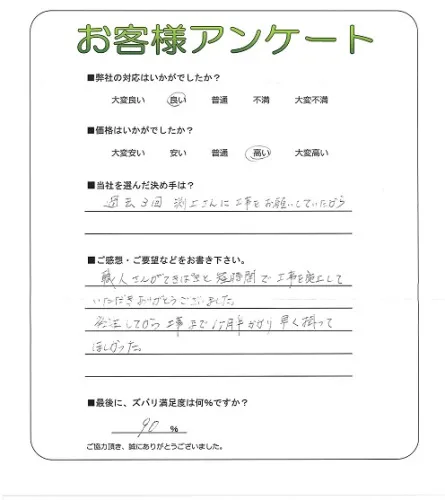 お客様アンケート
■弊社の対応はいかがでしたか？
大変良い 良い 普通 不満 大変不満
■価格はいかがでしたか？
大変安い 安い 普通 高い 大変高い
■当社を選んだ決め手は？
過去3回 渕上さんに工事をお願いしていたから
■ご感想・ご要望などをお書き下さい。
職人さんがてきぱきと短時間で工事を完工して
いただきありがとうございました。
発注してから工事まで1ヶ月半かかり早く掛って
ほしかった。
■最後に、ズバリ満足度は何％ですか？
90 %
ご協力頂き、誠にありがとうございました。